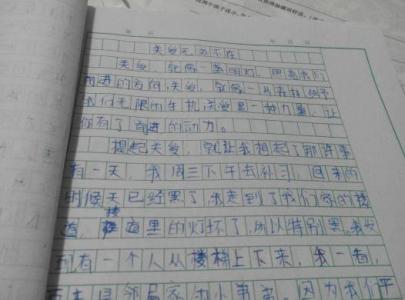 关爱无处不在
关爱,就像一盏明灯,照亮我们
前进的方向;关爱,就像一
我们无限的生机;关爱是一种力量,让
你有了前进的动力。
提起关爱,就让我想起了那件事
有一天,我周三下午去补习,回来的
时候天已经黑了,我走到了我们家的楼
道,楼道里的灯坏了,所以特别黑,我发
到有一个人从楼梯上下来,我一看,
邻居家的小弟弟,因为我个平